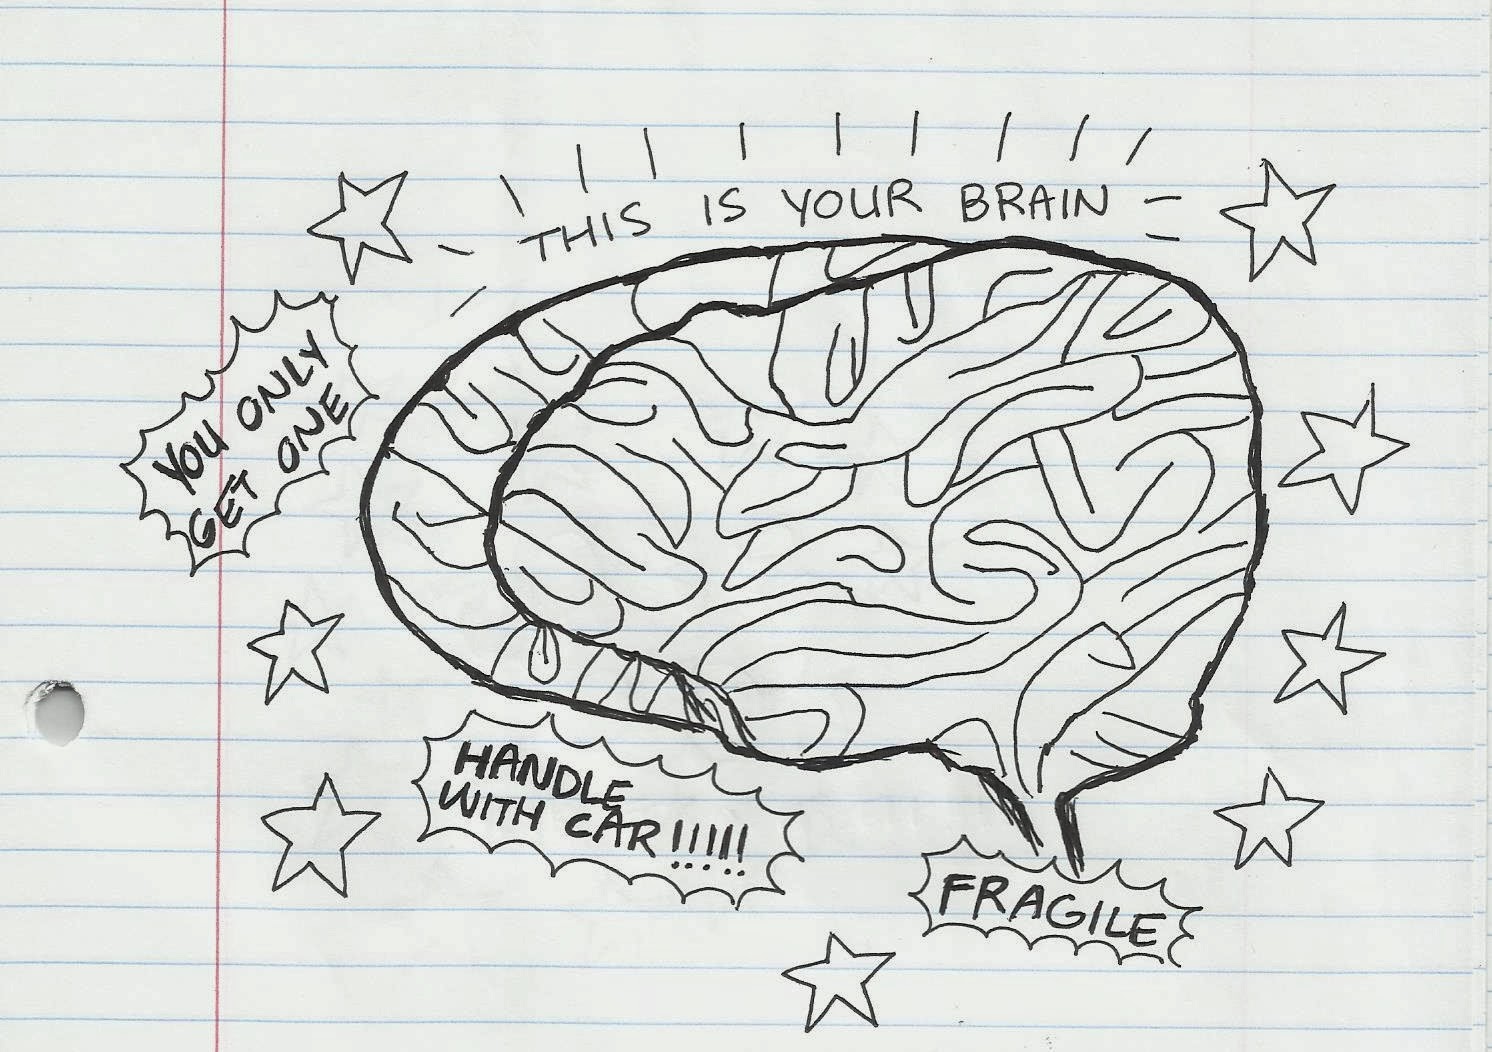 THIS IS YOUR BRAIN
YOU ONLY
GET ONE
HANDLE
WITH CAR!!!!!
FRAGILE